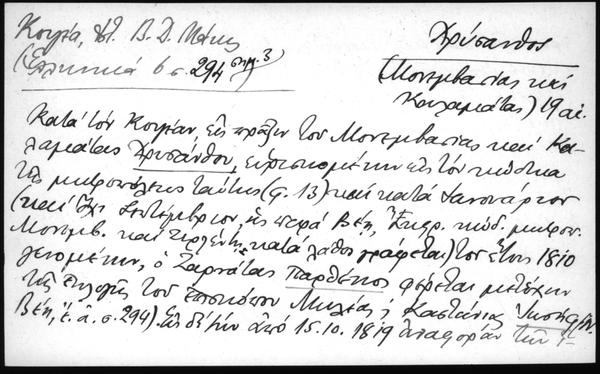 Κουγέα, ἐν. Β. Δ. Μέκιου
(Ἑλληνικά 6 σ. 294 σημ. 3)
Χρύσανθος
(Μονεμβασίας καὶ
Καλαμάτας) 19 αἰ.
Κατὰ τὸν Κουγέαν, εἰς πρᾶξιν τοῦ Μονεμβασίας καὶ Κα-
λαμάτας Χρυσάνθου, εὑρισκομένην εἰς τὸν κώδικα
τῆς μητροπόλεως ταύτης (φ. 13) καὶ κατὰ Ἰανουάριον
(καὶ ὄχι Σεπτέμβριον, ὡς παρὰ Βέῃ, Ἔκφρ. κώδ. μητροπ.
Μονεμβ. καὶ Ζερλέντῃ κατὰ λάθος γράφεται) τοῦ ἔτους 1810
γενομένην, ὁ Ζαρνάτας Παρθένιος φέρεται μετέχων
τῆς ἐκλογῆς τοῦ ἐπισκόπου Μηλέας ἢ Καστάνιας Ἰωσήφ
Βέη, ἔ. ἀ. σ. 294). Εἰς δὲ τὴν ἀπὸ 15.10.1819 ἀναφορὰν τῶν